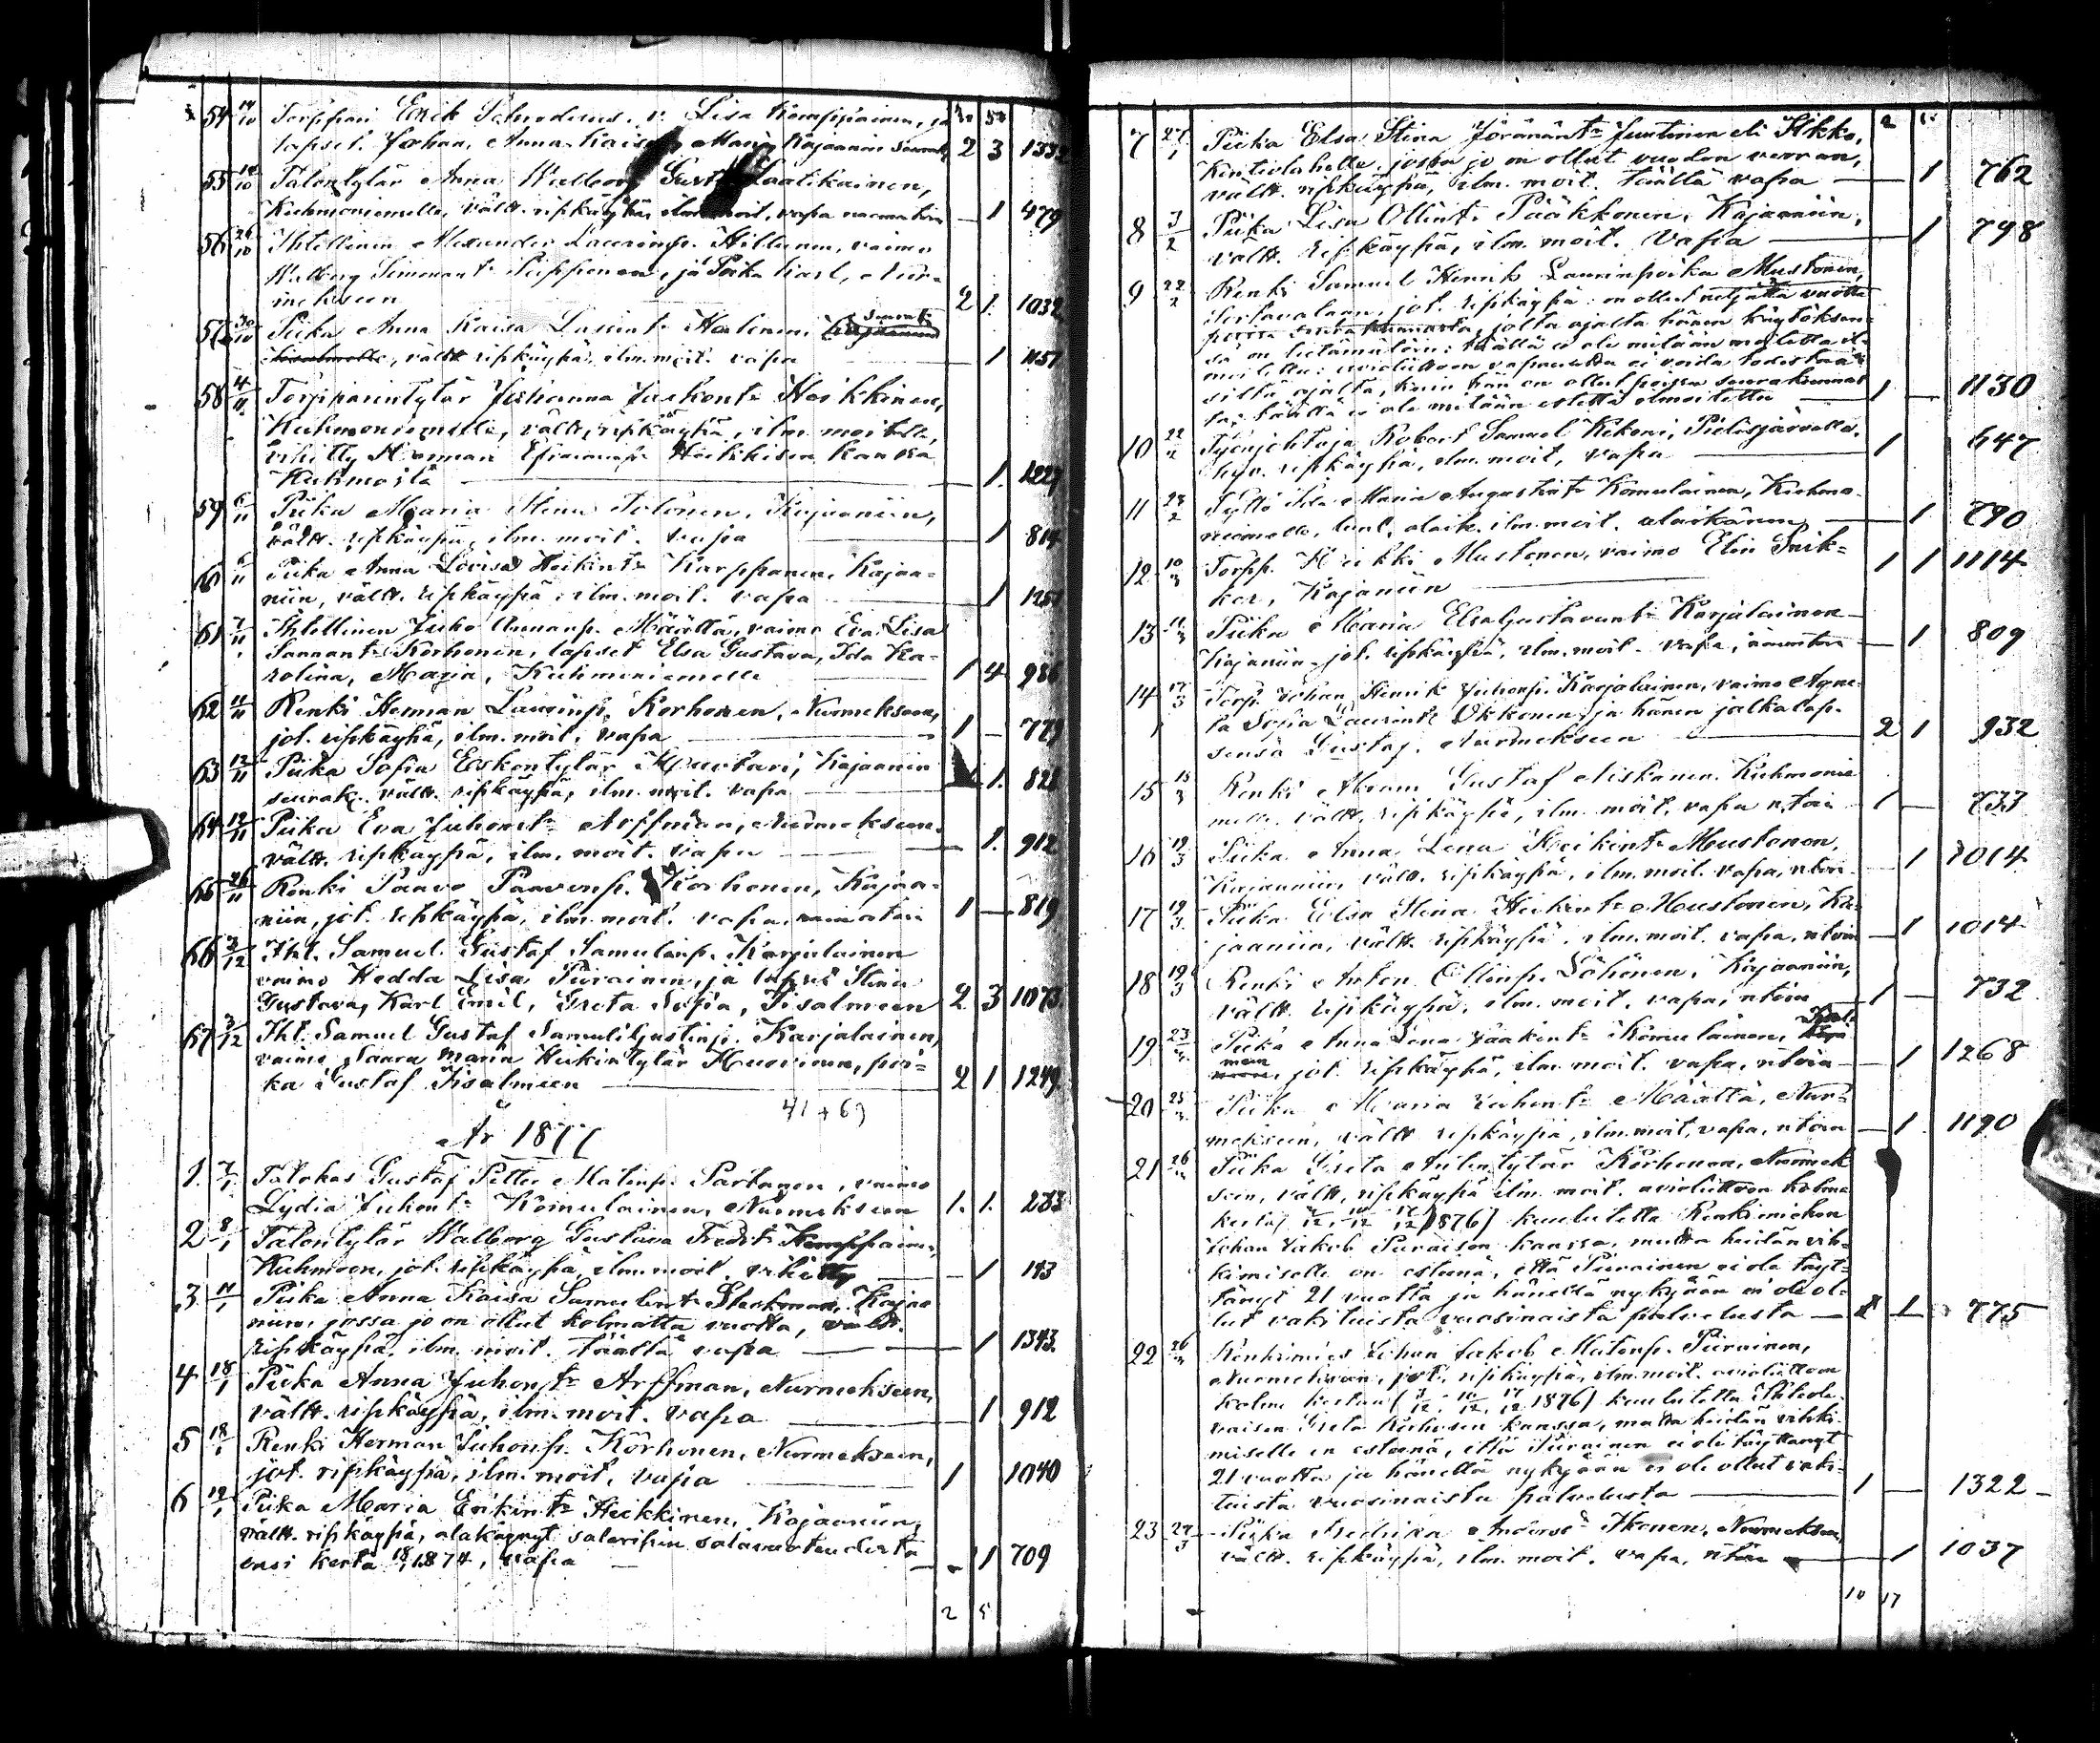 54 14/10 Torppari Erik Schroderus, v. Lisa Kemppainen, ja
lapset Johan, Anna Kaisa, Maria, Kajaanin seurak. 2 3 1332
55 14/10 Talontytär Anna Walborg Laatikainen,
Kuhmoniemelle, vältt. ripkäypä, ilm. moit. vapa — 1 479
56 26/10 Ithellinen Alexander Laurinp. Hiltunen, vaimo
Walborg Simmont: Piipponen, ja Poika Karl, Nur-
mekseen 2 1. 1032
57 30/10 Piika Anna Kaisa Laurint: Halonen, seurak:
vältt ripkäypä, ilm. moit. vapa — 1 1151
58 4/11 Torpparintytär Johanna Heikkinen,
Kuhmoniemelle, vältt. ripkäypä, ilm. moit
vihitty Herman Heikkisen kanssa
Kuhmosta — 1. 1227
59 6/11 Piika Maria Stina Tolonen, Kajaaniin,
vältt. ripkäypä, ilm. moit. vapa — 1 814
60 6/11 Piika Anna Lovisa Heikint: Karppanen, Kajaa-
niin, vältt. ripkäypä, ilm. moit. vapa — 1 1251
61 7/11 Ithellinen Juho Annanp. Määttä, vaimo Eva Lisa
Korhonen, lapset Elsa Gustava, Ida Ka-
rolina, Maria, Kuhmoniemelle 1 4 986
62 11/11 Renki Herman Laurinp. Korhonen, Nurmekseen,
jot. ripkäypä, ilm. moit. vapa 1 — 779
63 12/11 Piika Sofia Erkontytär Mustari, Kajaanin
seurak. vältt. ripkäypä, ilm. moit. vapa — 1. 828
64 12/11 Piika Eva Juhont: Arffman, Nurmekseen.
vältt. ripkäypä, ilm. moit. vapa — 1. 912
65 26/11 Renki Paavo Paavonp. Korhonen, Kajaa-
niin, jot. ripkäypä, ilm. moit. vapa 1 — 819
66 3/12 Ith. Samuel Gustaf Samulinp. Karjalainen
vaimo Hedda Lisa Piirainen, ja lapset Stina
Gustava, Karl Emil, Greta Sofia, Iisalmeen 2 3 1073
67 3/12 Iht. Samuel Gustaf Karjalainen,
vaimo Saara Maria Heikintytär Huovinen, poi-
ka Gustaf Iisalmeen 2 1 1249.
41 + 69
År 1877
1. 7/1 Talokas Gustaf Petter Matinp. Partanen, vaimo
Lydia Juhont: Komulainen, Nurmekseen 1. 1. 233
2 8/1 Talontytär Walborg Gustava Kemppainen,
Kuhmoon, jot. ripkäypä, ilm. moit. vihitty — 1 143
3 11/1 Piika Anna Kaisa Kajaa
niin, jossa jo on ollut kolmatta vuotta, vältt.
ripkäypä, ilm. moit. täältä vapa — 1 1343.
4 18/1 Piika Anna Juhont: Arffman, Nurmekseen,
vältt. ripkäypä, ilm. moit. vapa — 1 912
5 18/1 Renki Herman Juhonp. Korhonen, Nurmekseen,
jot. ripkäypä, ilm. moit, vapa 1 1040
6 19/1 Piika Maria Erikint: Heikkinen, Kajaaniin,
vältt. ripkäypä,
ensi kerta 1874, vapa — 1 709
2 5
7 27/1 Piika Elsa Stina Juntunen eli Kikko,
Kontiolahelle, jossa jo on ollut vuoden verran,
vältt. ripkäypä, ilm. moit. täällä vapa — 1 762
8 3/2 Piika Lisa Ollint: Pääkkonen, Kajaaniin,
vältt. ripkäypä, ilm. moit. vapa — 1 798
9 22/2 Renki Samuel Henrik Laurinpoika Mustonen,
Sortavalaan, jot. ripkäypä; on ollut neljättä vuotta
poissa seurakunnasta, jolta ajalta hänen käytöksen-
sä on tietämätöin;
avioliittoon vapauttaan ei voida todistaa
siltä ajalta, kuin hän on ollut poissa seurakunnas
ta; täältä ei ole mitään estettä ilmoitettu 1 — 1130
10 22/2 Työnjohtaja Robert Samuel Kekoni, Pielisjärvelle.
hyv. ripkäypä, ilm. moit, vapa 1 647
11 23/2 Tyttö Ida Maria Augustint: Komulainen, Kuhmo-
niemelle, ilm. moit. alaikänen — 1 790
12 10/3 Torpp. Heikki Mustonen, vaimo Elin Snik-
ker, Kajaniin 1 1 1114
13 11/3 Piika Maria Elsa Gustavunt: Karjalainen
Kajaniin, jot. ripkäypä, ilm. moit. vapa, — 1 809
14 17/3 Torp. Johan Henrik Juhonp. Karjalainen, vaimo Agne-
ta Sofia Laurint: Okkonen, ja hänen jalkalap-
sensa Gustaf. Nurmekseen 2 1 932
15 18/3 Renki Abram Gustaf Niskanen, Kuhmonie
melle. vältt. ripkäypä, ilm. moit. vapa ntoin 1 — 733
16 19/3 Piika Anna Lena Heikint: Mustonen,
Kajaaniin, vältt. ripkäypä, ilm. moit. vapa, ntoin — 1 1014
17 19/3 Piika Elsa Stina Heikint: Mustonen, Ka-
jaaniin, vältt. ripkäypä, ilm. moit. vapa, ntoin — 1 1014
18 19/3 Renki Anton Ollinp. Löhönen, Kajaaniin,
vältt. ripkäypä, ilm. moit. vapa, ntoin 1 — 732
19 23/3 Piika Anna Lena Jaakint: Komulainen, Iisal-
meen, jot. ripkäypä, ilm. moit. vapa, ntoin — 1 1268
20 25/3 Piika Maria Juhont: Määttä, Nur-
mekseen, vältt. ripkäypä, ilm. moit, vapa, ntoin — 1 1190
21 26/3 Piika Greta Korhonen, Nurmek
seen, vältt. ripkäypä ilm. moit. avioliittoon kolme
kertaa 3/12, 10/12, 17/12 1876) kuulutettu Renkimiehen
Johan Jakob Piiraisen kanssa, mutta heidän vih-
kimiselle on esteenä, että Piirainen ei ole täyt-
tänyt 21 vuotta ja hänellä nykyään ei ole ol-
lut vakituista vuosinaista palvelusta — 1 775
22 26/3 Renkimies Johan Jakob Matinp. Piirainen,
Nurmekseen, jot. ripkäypä, ilm. moit. avioliittoon
kolme kertaa (3/12. 10/12. 17/12 1876) kuulutettu
Greta Korhosen kanssa, mutta heidän vihki-
miselle on esteenä, että Piirainen ei ole täyttänyt
21 vuotta ja hänellä nykyään ei ole ollut vaki-
tuista vuosinaista palvelusta 1 — 1322
23 27/3 Piika Fredrika Ikonen, Nurmekseen,
vältt. ripkäypä, ilm. moit. vapa, ntoin — 1 1037
10 17